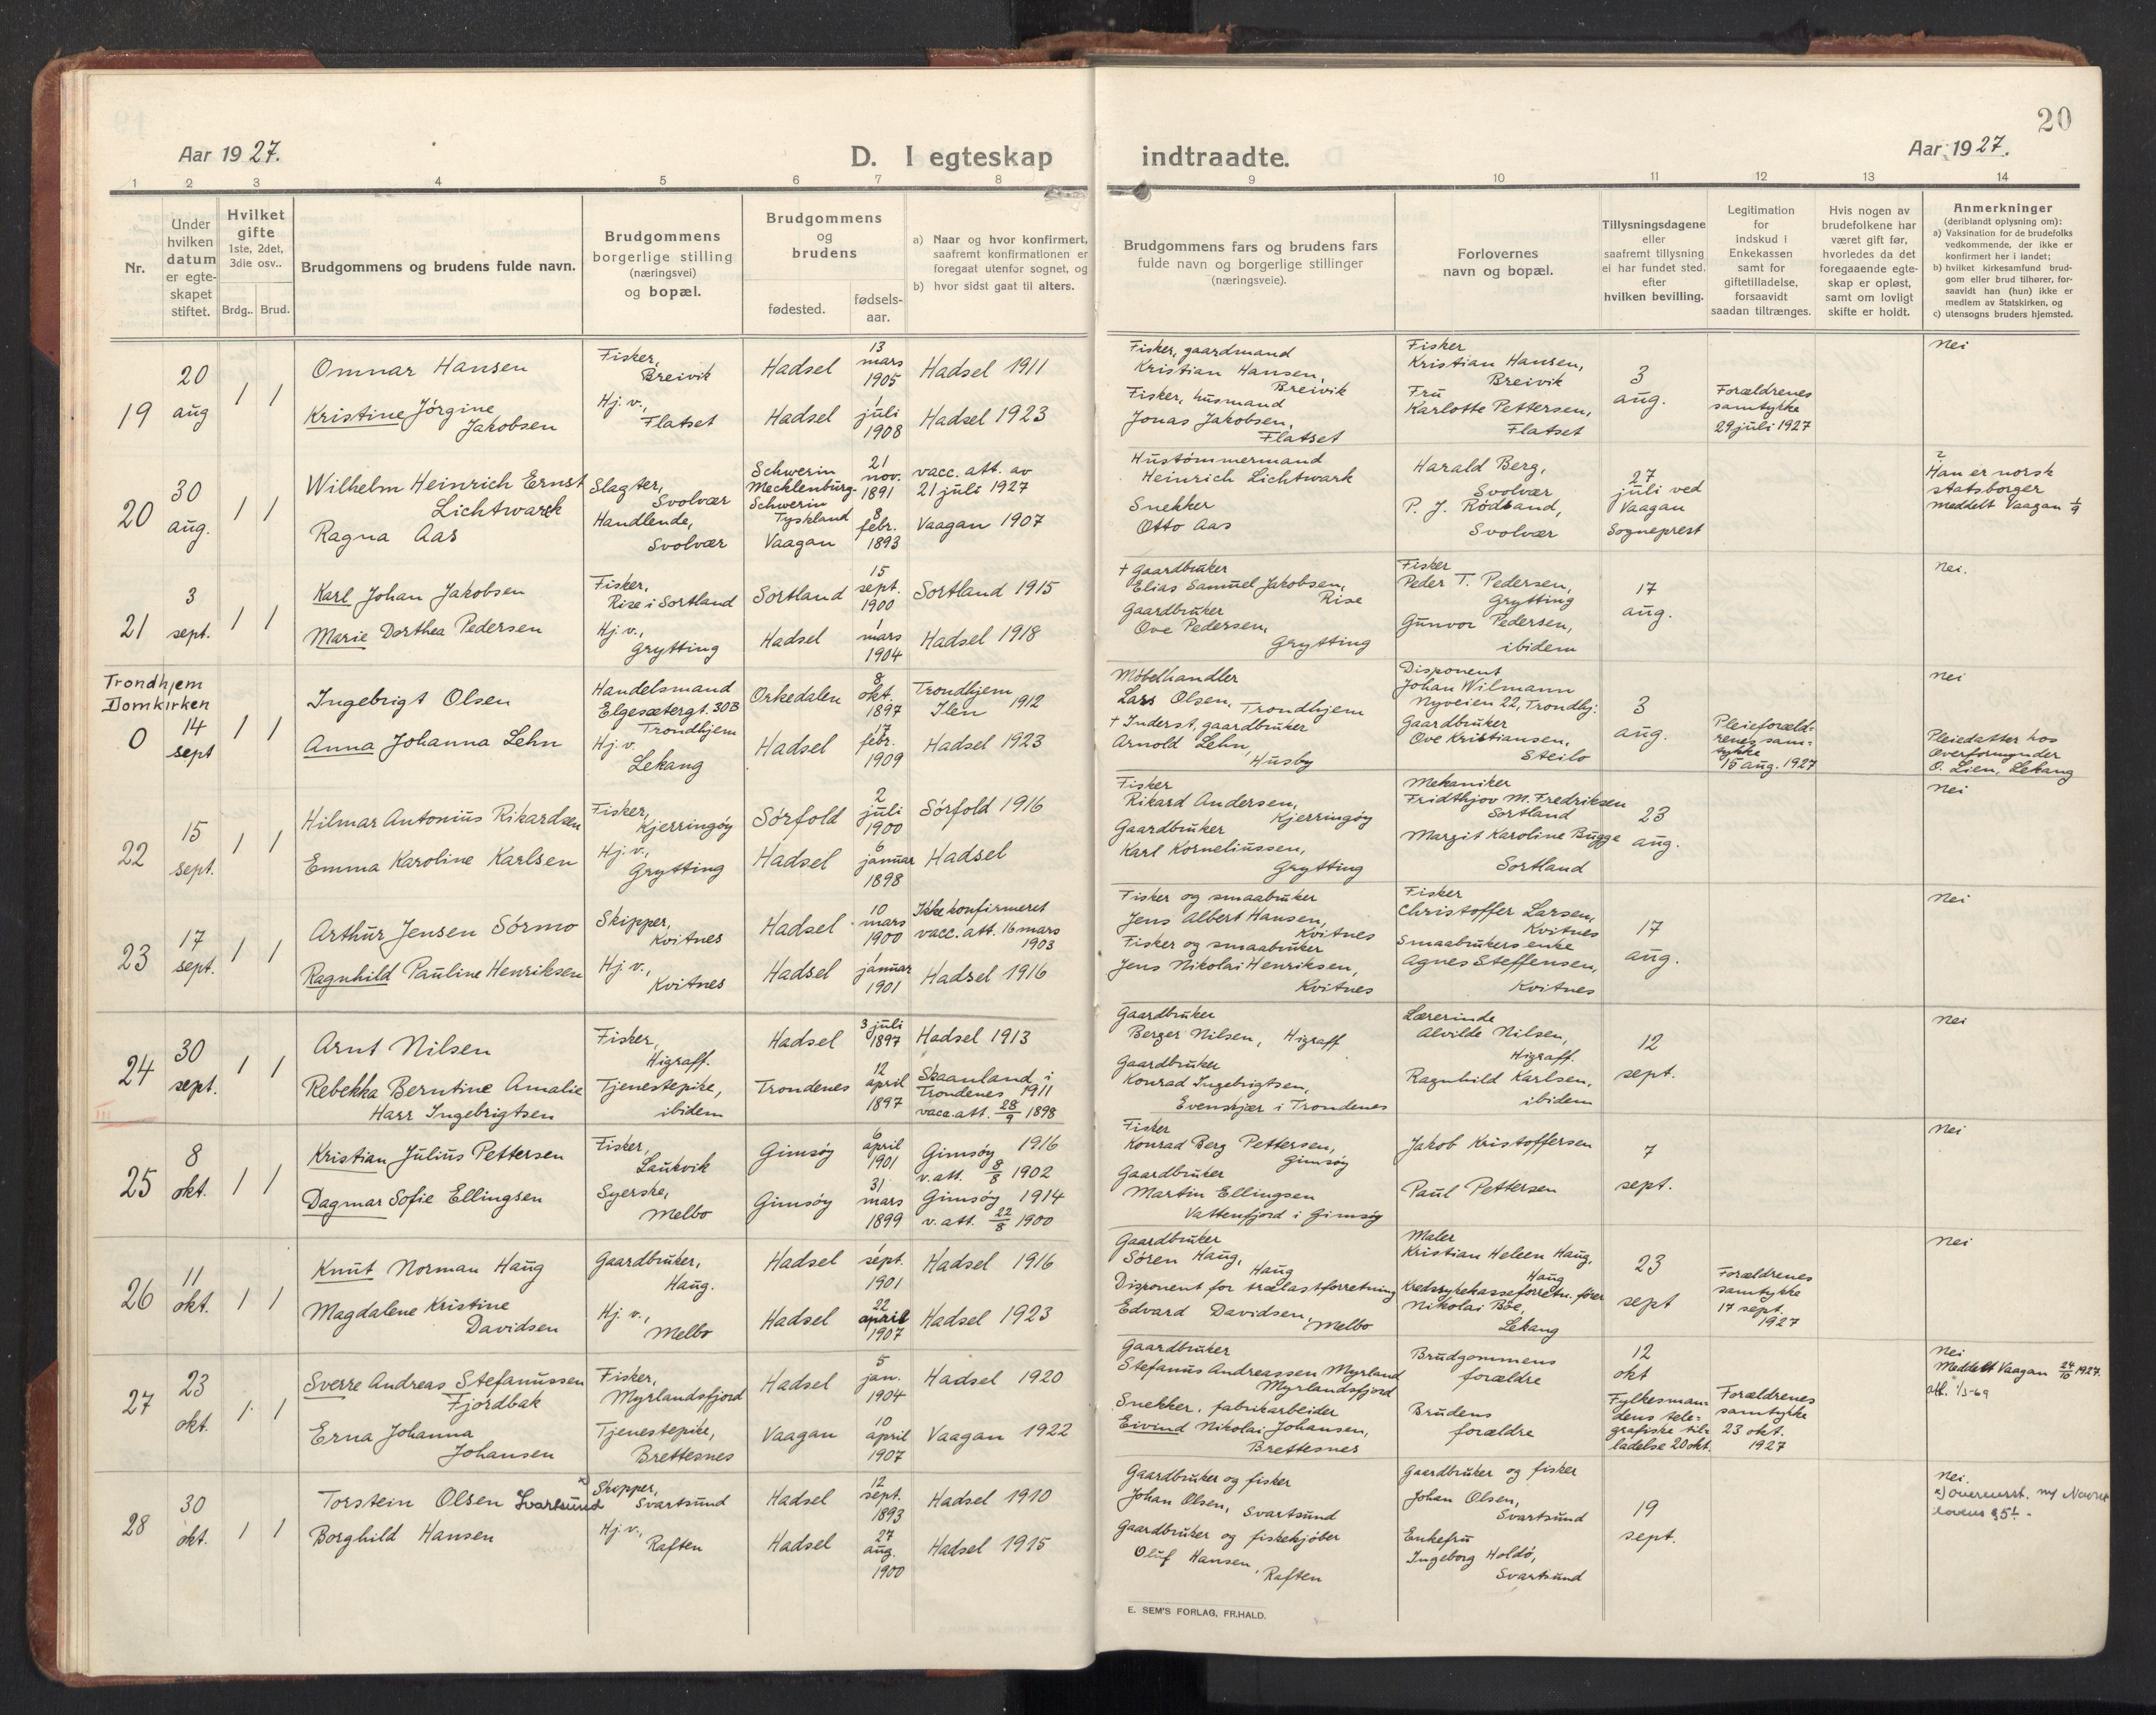 20
Aar 1927.
D. I egteskap indtraadte.
Aar 1927.
1 2 3 4 5 6 7 8 9 10 11 12 13 14
Nr.
Under
hvilken
datum
er egte-
skapet
stiftet.
Hvilket
gifte
1ste, 2det,
3die osv..
Brdg.. Brud.
Brudgommens og brudens fulde navn.
Brudgommens
borgerlige stilling
(næringsvei)
og bopæl.
Brudgommens
og
brudens
fødested.
fødsels-
aar.
a) Naar og hvor konfirmert,
saafremt konfirmationen er
foregaat utenfor sognet, og
b) hvor sidst gaat til alters.
Brudgommens fars og brudens fars
fulde navn og borgerlige stillinger
(næringsveie).
Forlovernes
navn og bopæl.
Tillysningsdagene
eller
saafremt tillysning
ei har fundet sted.
efter
hvilken bevilling.
Legitimation
for
indskud i
Enkekassen
samt for
giftetilladelse,
forsaavidt
saadan tiltrænges.
Hvis nogen av
brudefolkene har
været gift før,
hvorledes da det
foregaaende egte-
skap er opløst,
samt om lovligt
skifte er holdt.
Anmerkninger
(deriblandt oplysning om):
a) Vaksination for de brudefolks
vedkommende, der ikke er
konfirmert her i landet;
b) hvilket kirkesamfund brud-
gom eller brud tilhører, for-
saavidt han (hun) ikke er
medlem av Statskirken, og
c) utensogns bruders hjemsted.
19
20
aug
1 1
Omnar Hansen
Kristine Jörgine
Jakobsen
Fisker,
Breivik
Hj. v.,
Flatset
Hadsel
Hadsel
13
mars
1905
1
juli
1908
Hadsel 1911
Hadsel 1923
Fisker, gaardmand
Kristian Hansen,
Breivik
Fisker, husmand
Jonas Jakobsen,
Flatset
Fisker
Kristian Hansen,
Breivik
Fru
Karlotte Pettersen,
Flatset
3
aug.
Forældrenes
samtykke
29 juli 1927
Nei
20
30
aug.
1 1
Wilhelm Heinrich Ernst
Lichtwark
Ragna Aas
Slagter,
Svolvær
Handlende,
Svolvær
Schwerin
Mecklenburg-
Schwerin
Tyskland
Vaagan
21
nov.
1891
8
febr.
1893
vacc. att. av
21 juli 1927
Vaagan 1907
Hustömmermand
Heinrich Lichtwark
Snekker
Otto Aas
Harald Berg,
Svolvær
P. J. Rödsand,
Svolvær
27
juli ved
Vaagan
Sogneprest
Han er norsk
statsborger
meddelt Vaagan 1/9
21
3
sept.
1 1
Karl Johan Jakobsen
Marie Dorthea Pedersen
Fisker,
Rise i Sortland
Hj. v.,
Grytting
Sortland
Hadsel
15
sept.
1900
1
mars
1904
Sortland 1915
Hadsel 1918
+ Gaardbruker
Elias Samuel Jakobsen,
Rise
Gaardbruker
Ove Pedersen,
Grytting
Fisker
Peder T. Pedersen,
Grytting
Gunvor Pedersen,
ibidem
17
aug.
Nei.
Trondhjem
Domkirken
0
14
sept
1 1
Ingebrigt Olsen
Anna Johanna Lehn
Handelsmand
Elgesætergt. 30B
Trondhjem
Hj. v.
Lekang
Orkedalen
Hadsel
8
okt.
1897
17
febr.
1909
Trondhjem
Ilen 1912
Hadsel 1923
Møbelhandler
Lars Olsen, Trondhjem
+ Inderst, gaardbruker
Arnold Lehn,
Husby
Disponent
Johan Wilmann
Nyveien 22, Trondhj:
Gaardbruker
Ove Kristiansen,
Steilo
3
aug.
Pleieforæld-
renes sam-
tykke
15 aug. 1927
Nei
Pleiedatter hos
Overformynder
O. Lien, Lekang
22
15
sept.
1 1
Hilmar Antonius Rikardsen
Emma Karoline Karlsen
Fisker,
Kjerringöy
Hj. v.,
Grytting
Sörfold
Hadsel
2
juli
1900
6
januar
1898
Sörfold 1916
Hadsel
Fisker
Rikard Andersen,
Kjerringöy
Gaardbruker
Karl Korneliussen,
Grytting
Mekaniker
Fridthjov M. Fredriksen
Sortland
Margit Karoline Bugge
Sortland
23
aug.
Nei
23
17
sept.
1 1
Arthur Jensen Sörmo
Ragnhild Pauline Henriksen
Skipper,
Kvitnes
Hj. v.,
Kvitnes
Hadsel
Hadsel
10
mars
1900
1
januar
1901
Ikke konfirmeret
vacc. att. 16 mars
1903
Hadsel 1916
Fisker og smaabruker
Jens Albert Hansen,
Kvitnes
Fisker og smaabruker
Jens Nikolai Henriksen,
Kvitnes
Fisker
Christoffer Larsen,
Kvitnes
Smaabrukers enke
Agnes Steffensen,
Kvitnes
17
aug.
Nei
24
30
sept.
1 1
III
Arnt Nilsen
Rebekka Berntine Amalie
Harr Ingebrigtsen
Fisker,
Higraff.
Tjenestepike,
ibidem
Hadsel
Trondenes
3 juli
1897
12
april
1897
Hadsel 1913
Skaanland i
Trondenes 1911
vacc. att. 28/9 1898
Gaardbruker
Berger Nilsen, Higraff
Gaardbruker
Konrad Ingebrigtsen,
Evenskjær i Trondenes
Lærerinde
Alvilde Nilsen,
Higraff.
Ragnhild Karlsen,
ibidem
12
sept.
Nei
25
8
okt.
1 1
Kristian Julius Pettersen
Dagmar Sofie Ellingsen
Fisker,
Laukvik
Syerske,
Melbo
Gimsöy
Gimsöy
6
april
1901
31
mars
1899
Gimsöy 1916
v. att. 8/8 1902
Gimsöy 1914
v. att. 22/8 1900
Fisker
Konrad Berg Pettersen,
Gimsöy
Gaardbruker
Martin Ellingsen
Vattenfjord i Gimsöy
Jakob Kristoffersen
Paul Pettersen
7
sept.
Nei
26
11
okt.
1 1
Knut Norman Haug
Magdalene Kristine
Davidsen
Gaardbruker,
Haug.
Hj. v.,
Melbo
Hadsel
Hadsel
1
sept.
1901
22
april
1907
Hadsel 1916
Hadsel 1923
Gaardbruker
Sören Haug,
Haug
Disponent for trælastforretning
Edvard Davidsen,
Melbo
Maler
Kristian Heleen Haug,
Haug
Kredssykekasseforretn. förer
Nikolai Böe,
Lekang
23
sept
Forældrenes
samtykke
17 sept.
1927
Nei
27
23
okt.
1 1
Sverre Andreas Stefanussen
Fjordbak
Erna Johanna
Johansen
Fisker,
Myrlandsfjord
Tjenestepike,
Brettesnes
Hadsel
Vaagan
5
jan.
1904
10
april
1907
Hadsel 1920
Vaagan 1922
Gaardbruker
Stefanus Andreassen Myrland
Myrlandsfjord
Snekker, fabrikarbeider
Eivind Nikolai Johansen,
Brettesnes
Brudgommens
forældre
Brudens
forældre
12
okt
Fylkesman-
dens tele-
grafiske til-
ladelse 20 okt.
Forældrenes
samtykke
23 okt.
1927
Nei
Meddelt Vaagan 24/10 1927.
att. 1/5-69
28
30
okt.
1 1
Torstein Olsen Svartsund x)
Borghild Hansen
Skipper,
Svartsund
Hj. v.,
Raften
Hadsel
Hadsel
12
sept.
1893
27
aug.
1900
Hadsel 1910
Hadsel 1915
Gaardbruker og fisker
Johan Olsen, Svartsund
Gaardbruker og fiskekjöber
Oluf Hansen,
Raften
Gaardbruker og fisker
Johan Olsen,
Svartsund
Enkefru
Ingeborg Holdö,
Svartsund
19
sept.
Nei.
x) overensst. m/ Navne
lovens §5
E. SEM'S FORLAG, FR.HALD.